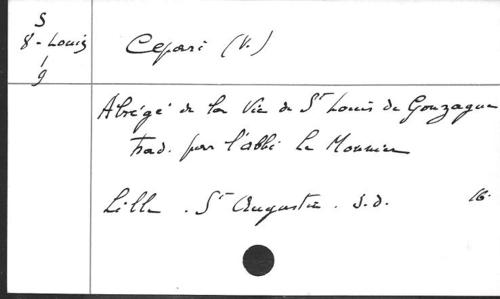 S
8-Louis
1
9
Cepari (V.)
Abrégé de la Vie de St Louis de Gonzague
Trad. par l'abbé Le Monnier
Lille. St Augustin. s.d. 16.